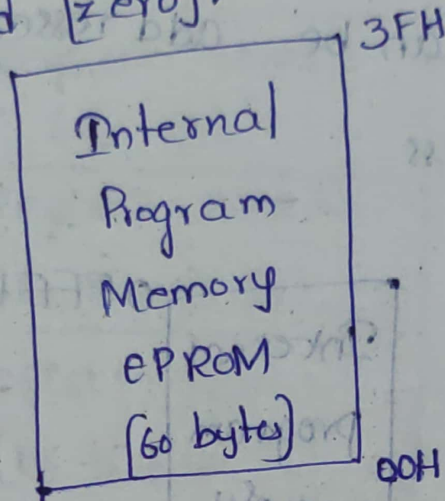 [zero]
3FH
Internal
Program
Memory
EPROM
[60 bytes]
00H